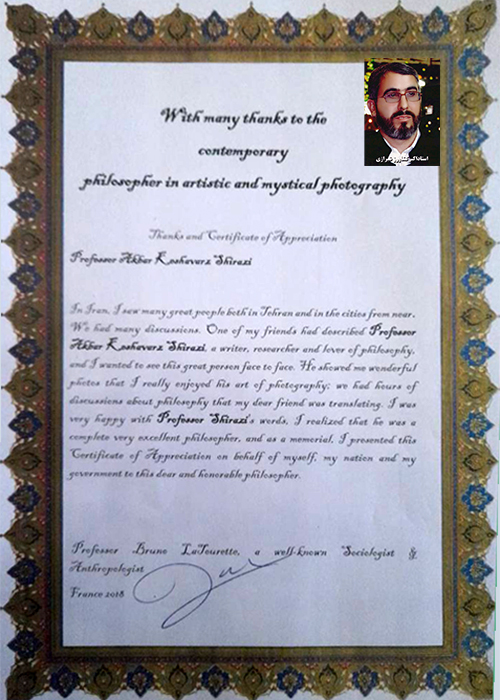 With many thanks to the
contemporary
philosopher in artistic and mystical photography
استاد اکبر کشاورز شیرازی
Thanks and Certificate of Appreciation
Professor Akbar Keshavarz Shirazi
In Iran, I saw many great people both in Tehran and in the cities from near.
We had many discussions. One of my friends had described Professor
Akbar Keshavarz Shirazi, a writer, researcher and lover of philosophy,
and I wanted to see this great person face to face. He showed me wonderful
photos that I really enjoyed his art of photography; we had hours of
discussions about philosophy that my dear friend was translating. I was
very happy with Professor Shirazi's words, I realized that he was a
complete very excellent philosopher, and as a memorial, I presented this
Certificate of Appreciation on behalf of myself, my nation and my
government to this dear and honorable philosopher.
Professor Bruno LaTourette, a well-known Sociologist &
Anthropologist
France 2018